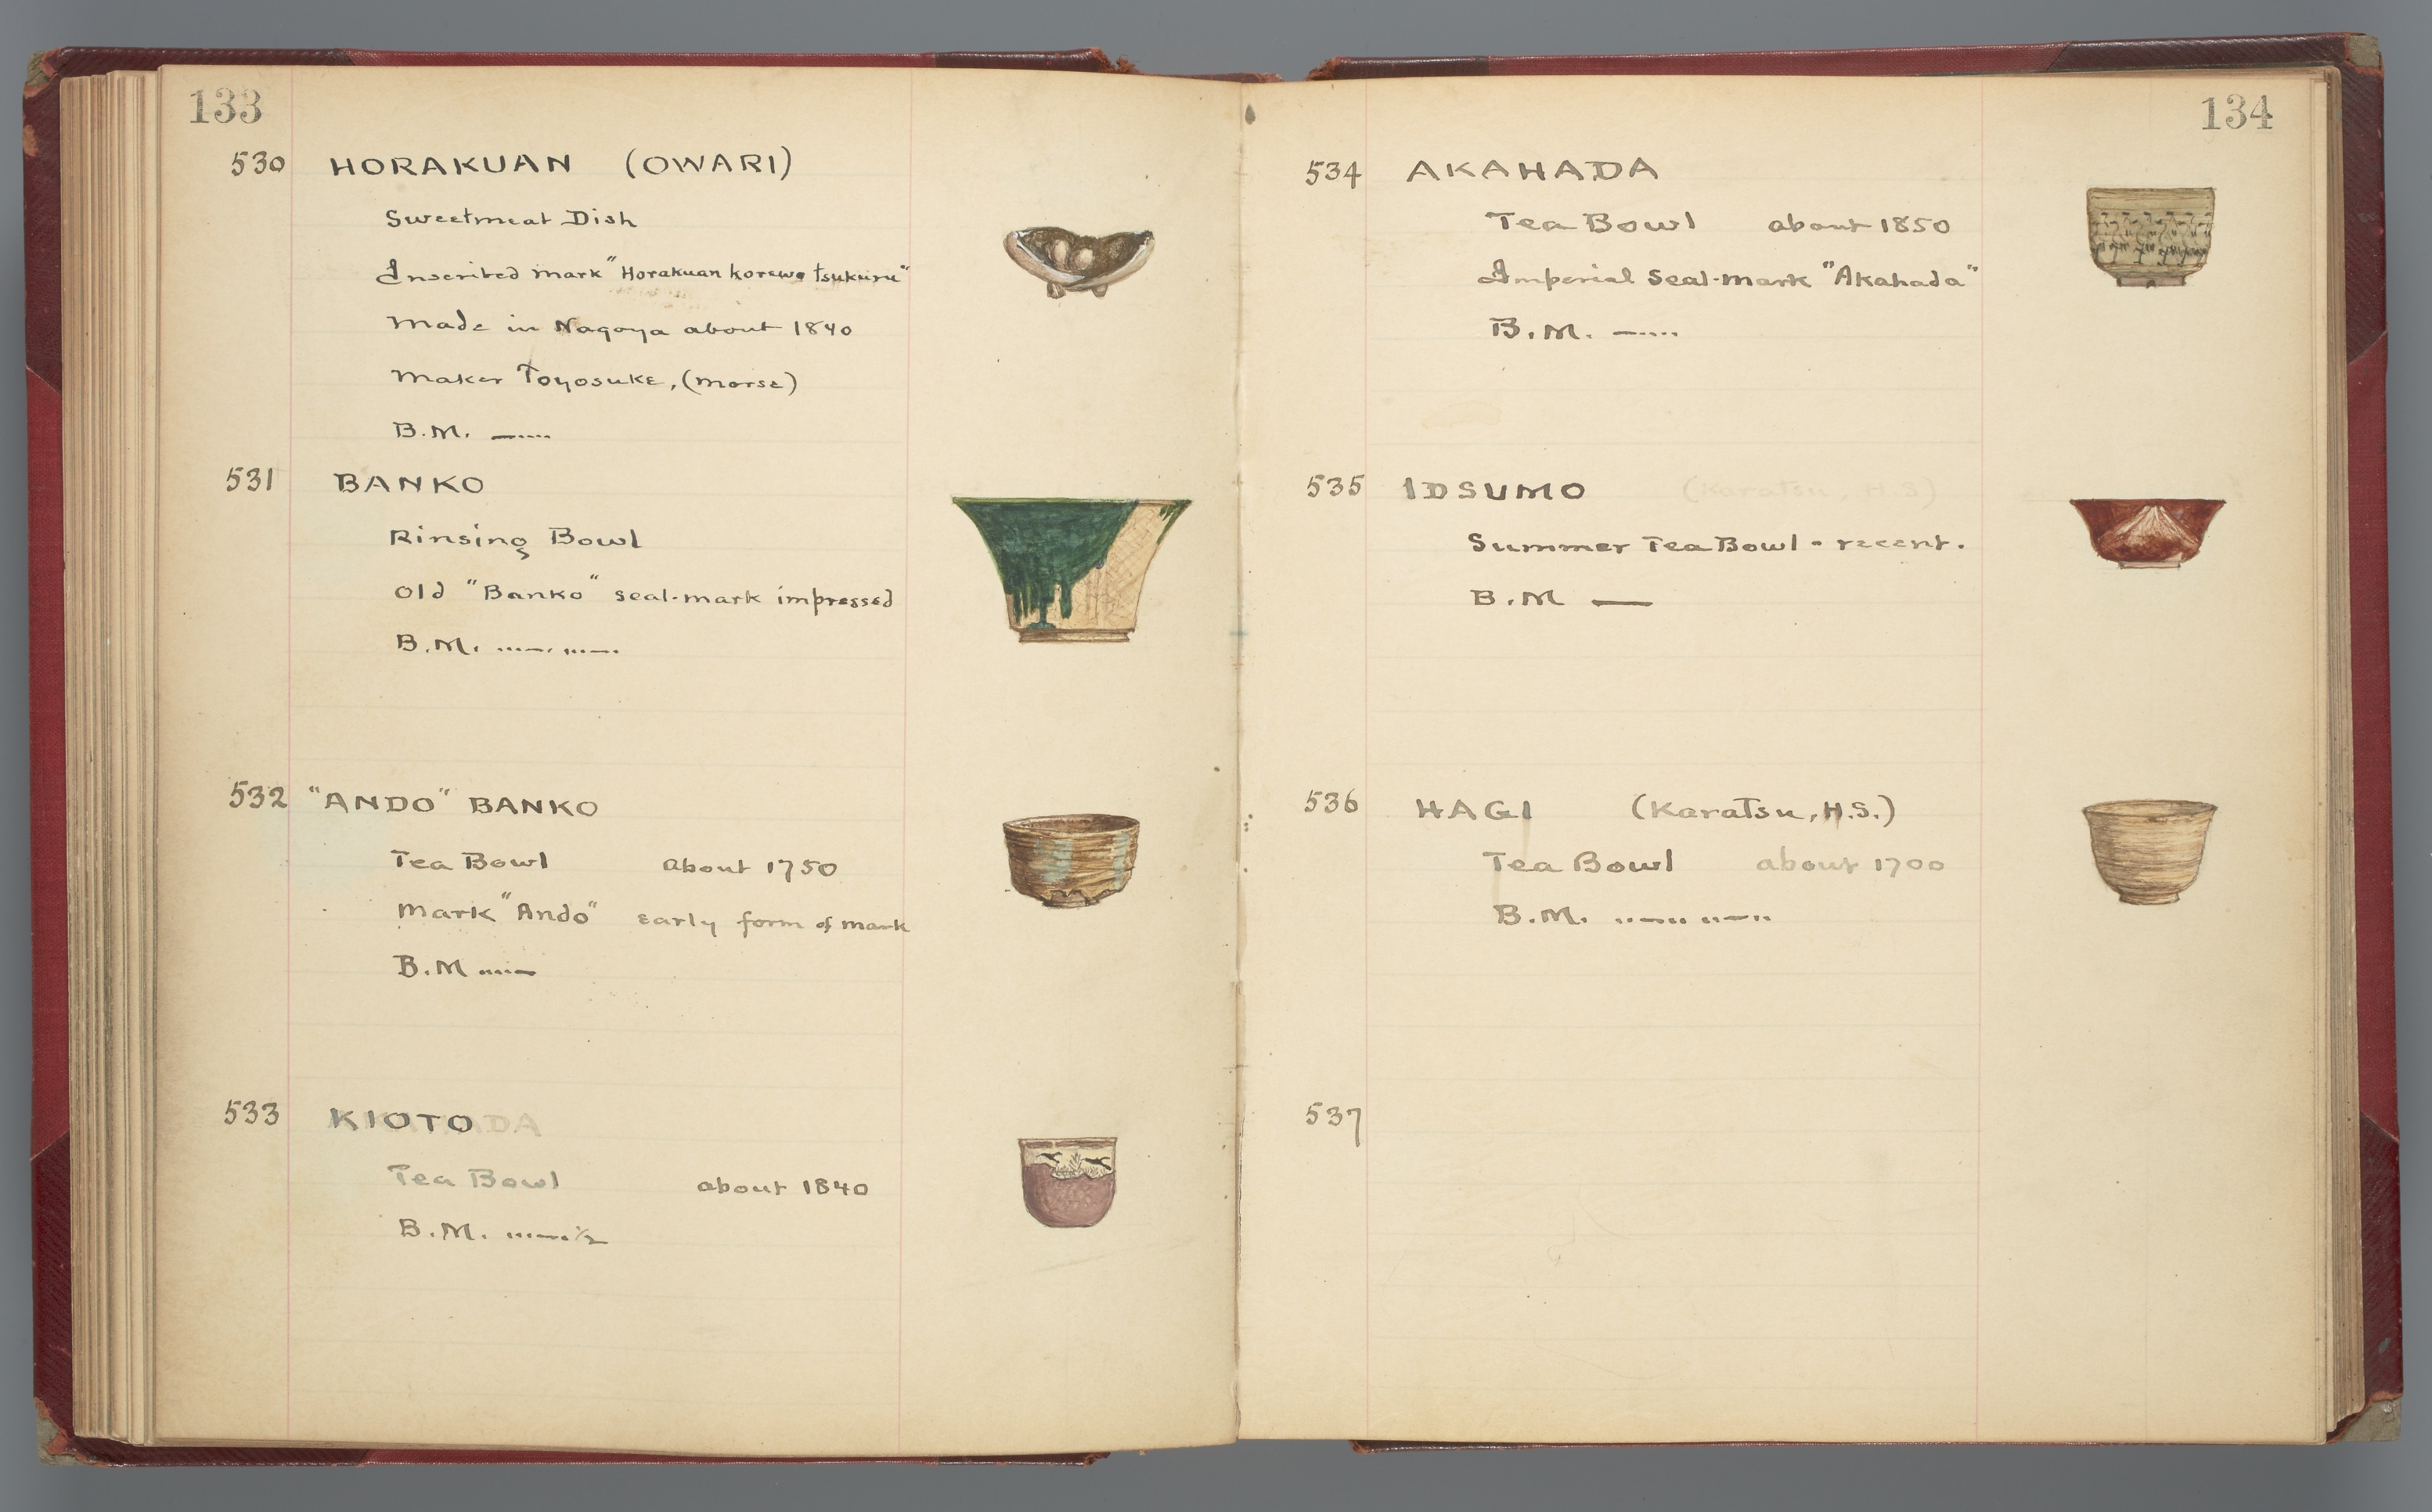 133
530 HORAKUAN (OWARI)
Sweetmeat Dish
Inscribed mark "Horakuan korewo tsukuru"
Made in Nagoya about 1840
Maker Toyosuke, (Morse)
B.M. —····
531 BANKO
Rinsing Bowl
Old "Banko" seal-mark impressed
B.M. ····—· ···—·
532 "ANDO" BANKO
Tea Bowl about 1750
Mark "Ando" early form of mark
B.M ····—
533 KIOTO
Tea Bowl about 1840
B.M. ····—·½
134
534 AKAHADA
Tea Bowl about 1850
Imperial Seal-mark "Akahada"
B.M. —····
535 IDSUMO (Karatsu, H.S)
Summer Tea Bowl - recent.
B.M —
536 HAGI (Karatsu, H.S.)
Tea Bowl about 1700
B.M. ··—·· ··—··
537